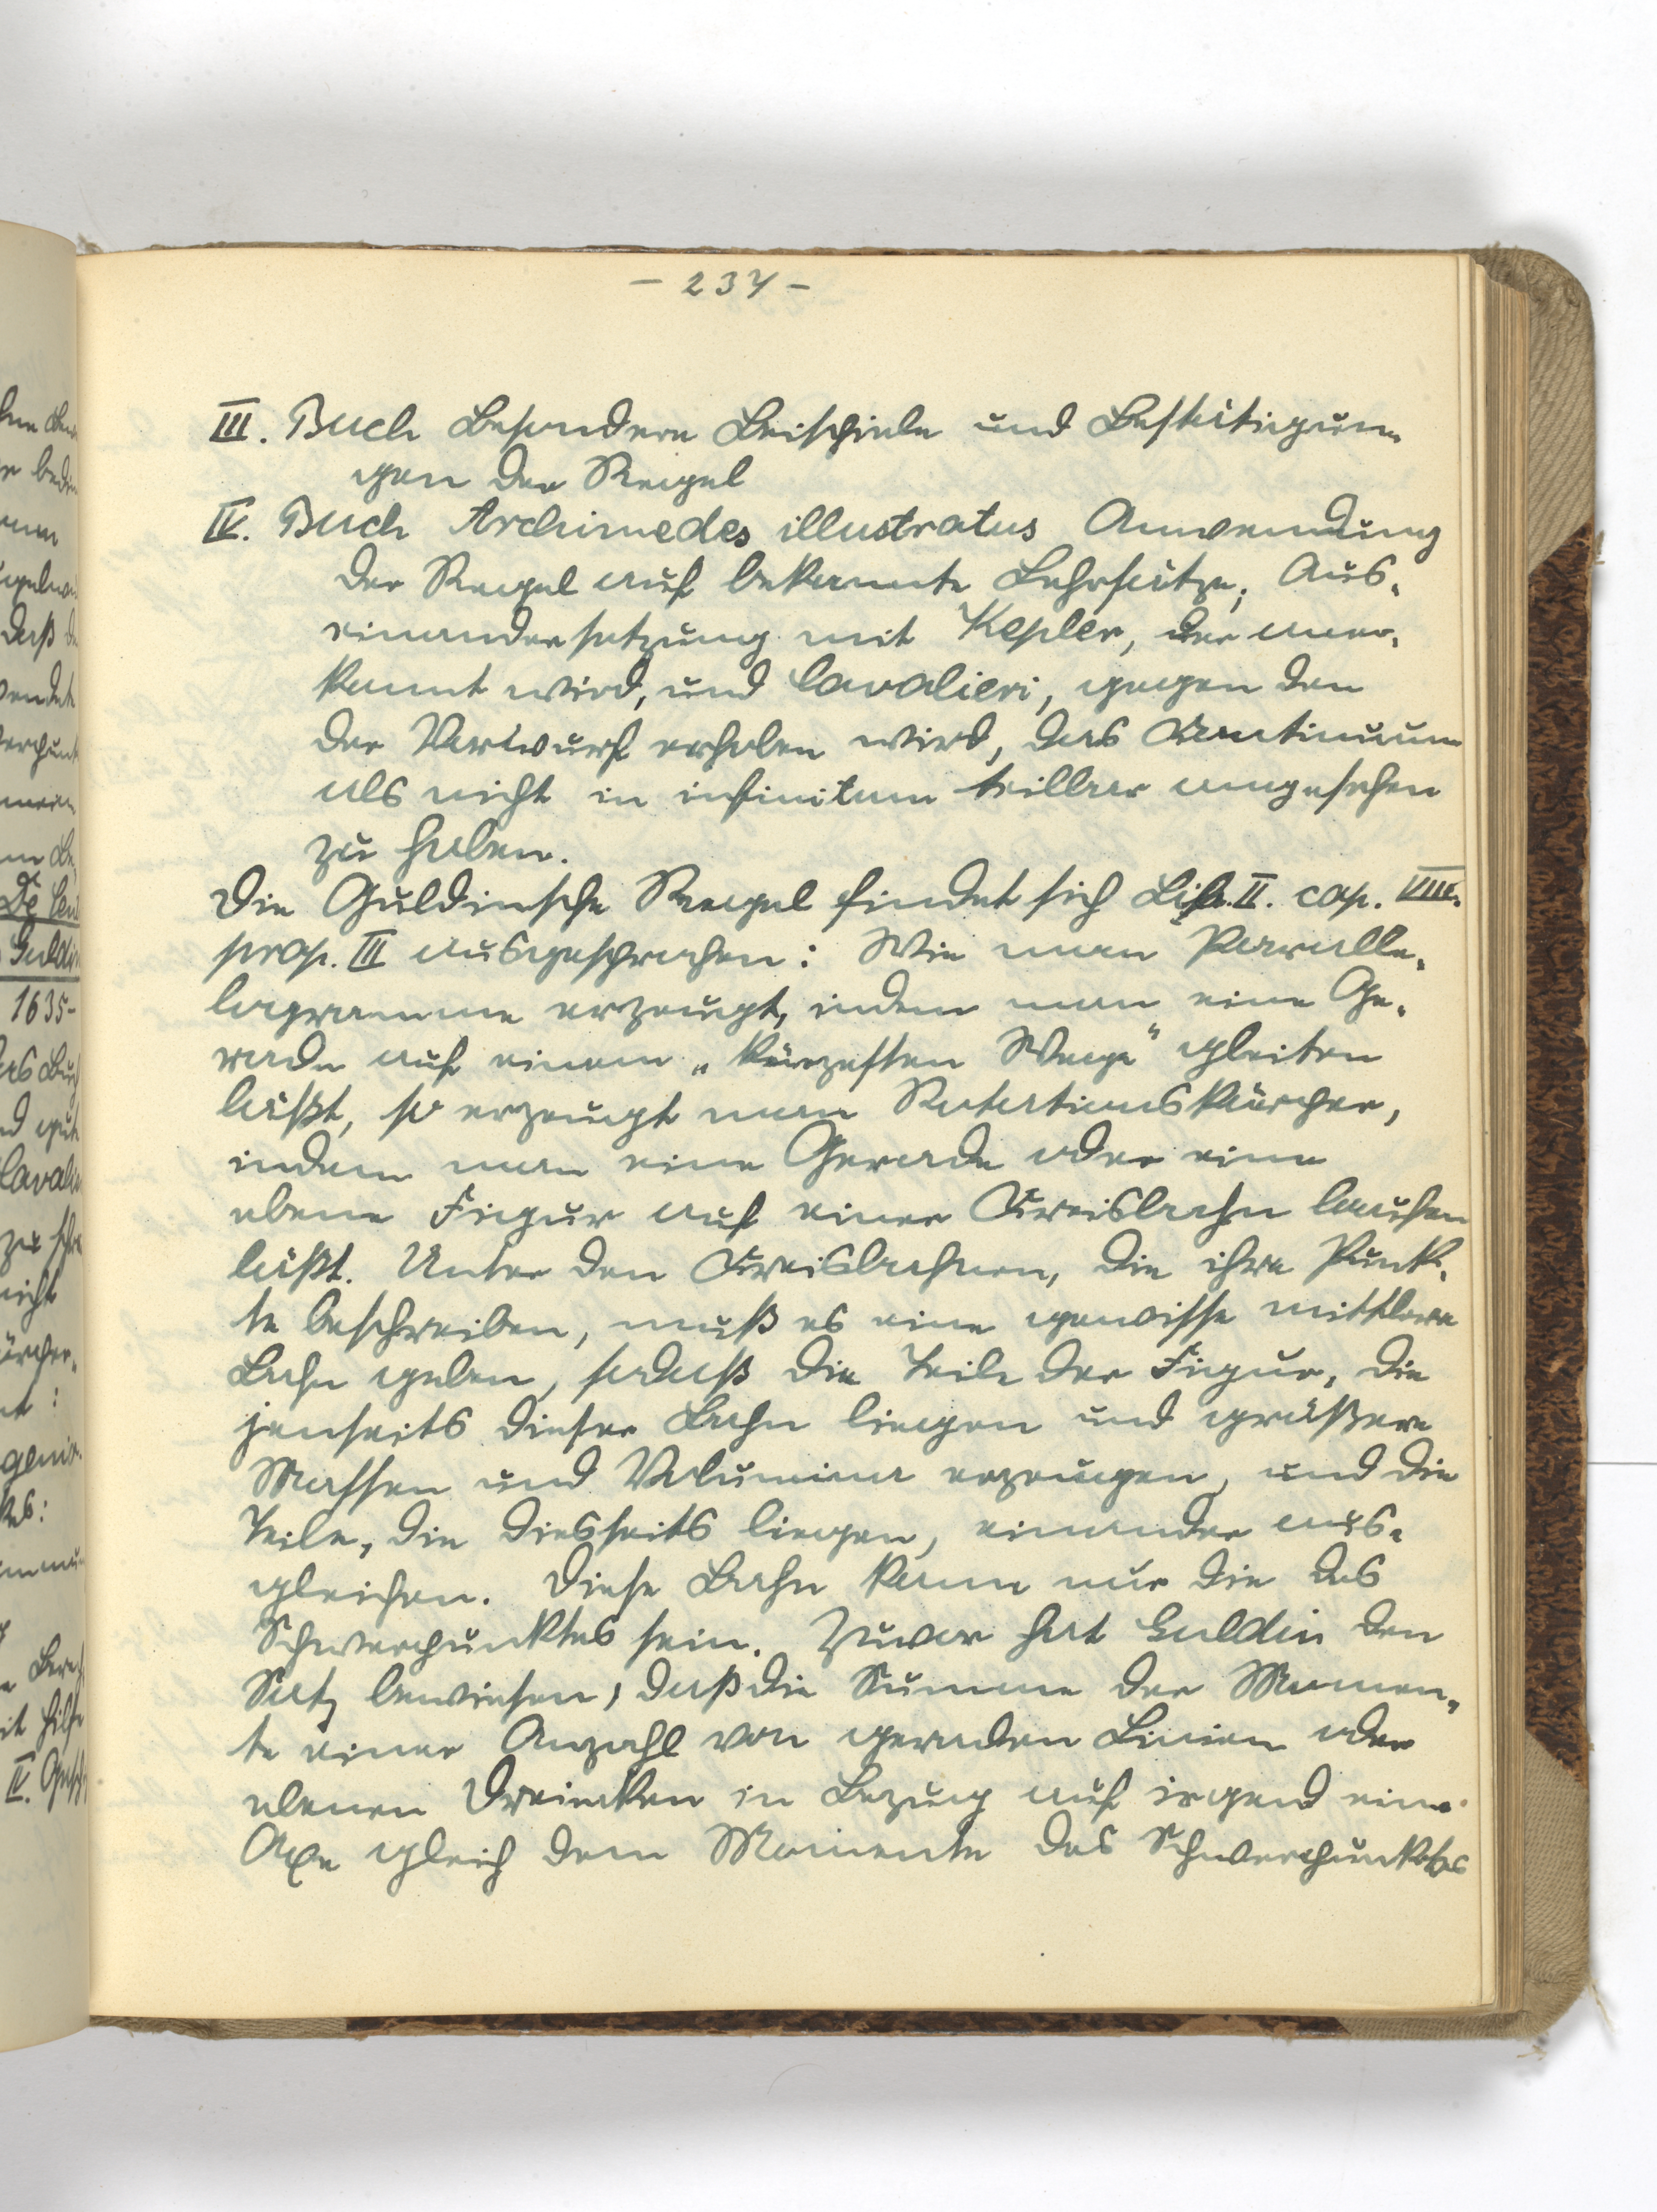 - 237 -
III. Buch Besondere Beispiele und Bestätigun-
gen der Regel
IV. Buch Archimedes illustratus Anwendung
der Regel auf bekannte Lehrsätze; Aus-
einandersetzung mit Kepler, der aner-
kannt wird, und Cavalieri, gegen den
der Vorwurf erhoben wird, das Continuum
als nicht in infinitum teilbar angesehen
zu haben.
Die Guldinsche Regel findet sich Lib. II. cap. VIII.
prop. III ausgesprochen: Wie man Paralle-
logramme erzeugt, indem man eine Ge-
rade auf einem „kürzesten Wege" gleiten
läßt, so erzeugt man Rotationskörper,
indem man eine Gerade oder eine
ebene Figur auf einer Kreisbahn laufen
läßt. Unter den Kreisbahnen, die ihre Punk-
te beschreiben, muß es eine gewisse mittlere
Bahn geben, sodaß die Teile der Figur, die
jenseits dieser Bahn liegen und größere
Massen und Volumina erzeugen, und die
Teile, die diesseits liegen, einander aus-
gleichen. Diese Bahn kann nur die des
Schwerpunktes sein. Zuvor hat Guldin den
Satz bewiesen, daß die Summe der Momen-
te einer Anzahl von geraden Linien oder
ebenen Dreiecken in Bezug auf irgend eine
Axe gleich dem Momente des Schwerpunktes